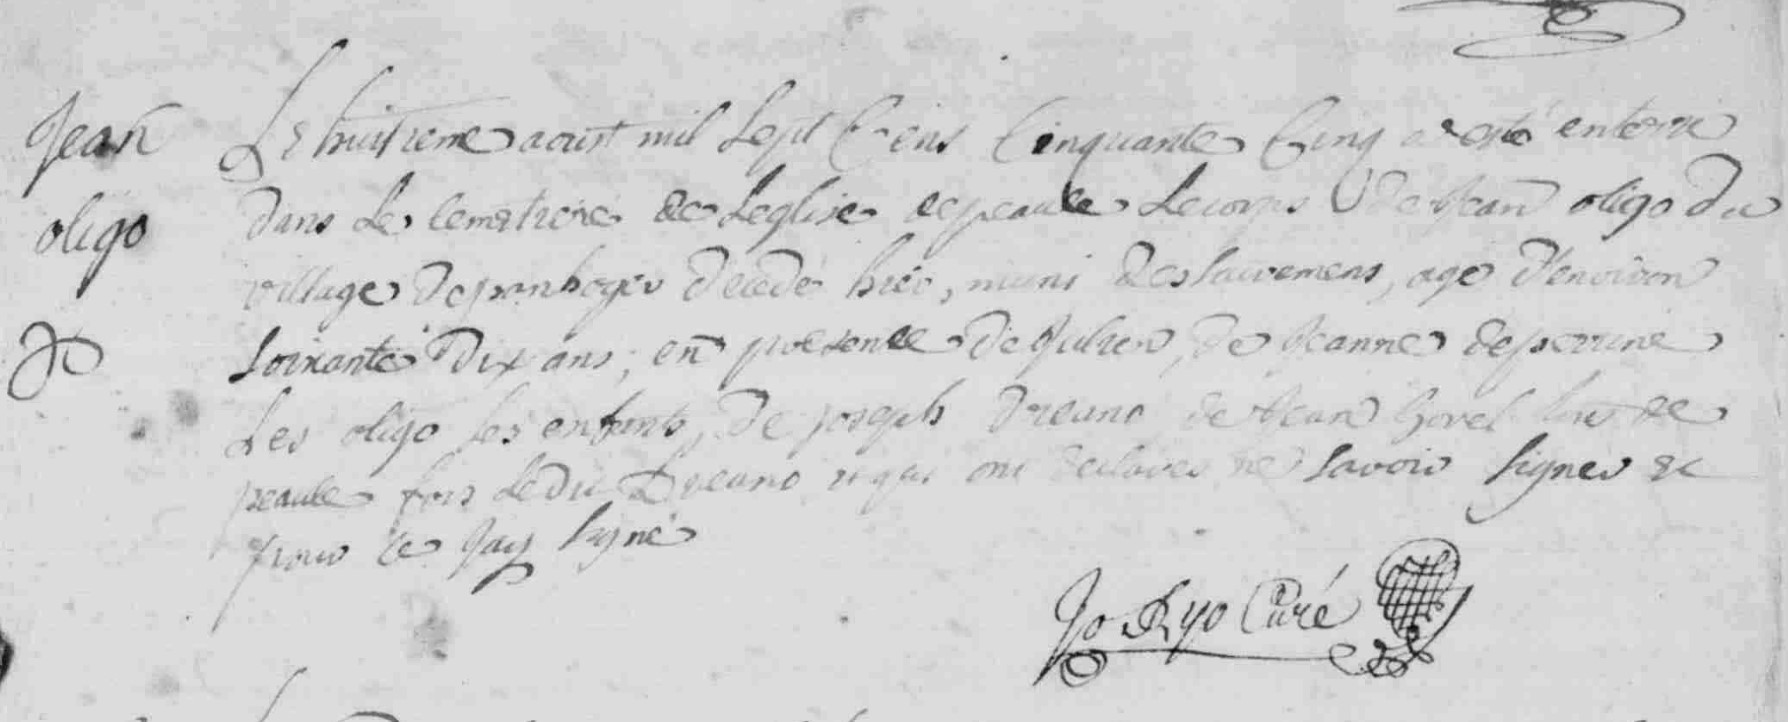 Jean
oligo
Le huitieme aoust mil sept Cens Cinquante Cinq a esté enterre
dans Le Cemetiere de Leglise de peaule Le corps de Jean oligo du
village de decedé hier, muni des sacremens, age d'environ
soixante dix ans, en presence de Julien, de Jeanne de perrine
Les oligo ses enfants, de joseph dreano de Jean tous de
peaule fors Ledit Dreano et qui ont declarer ne savoir signer &
pour ce Jay signé
Jo Ryo Curé